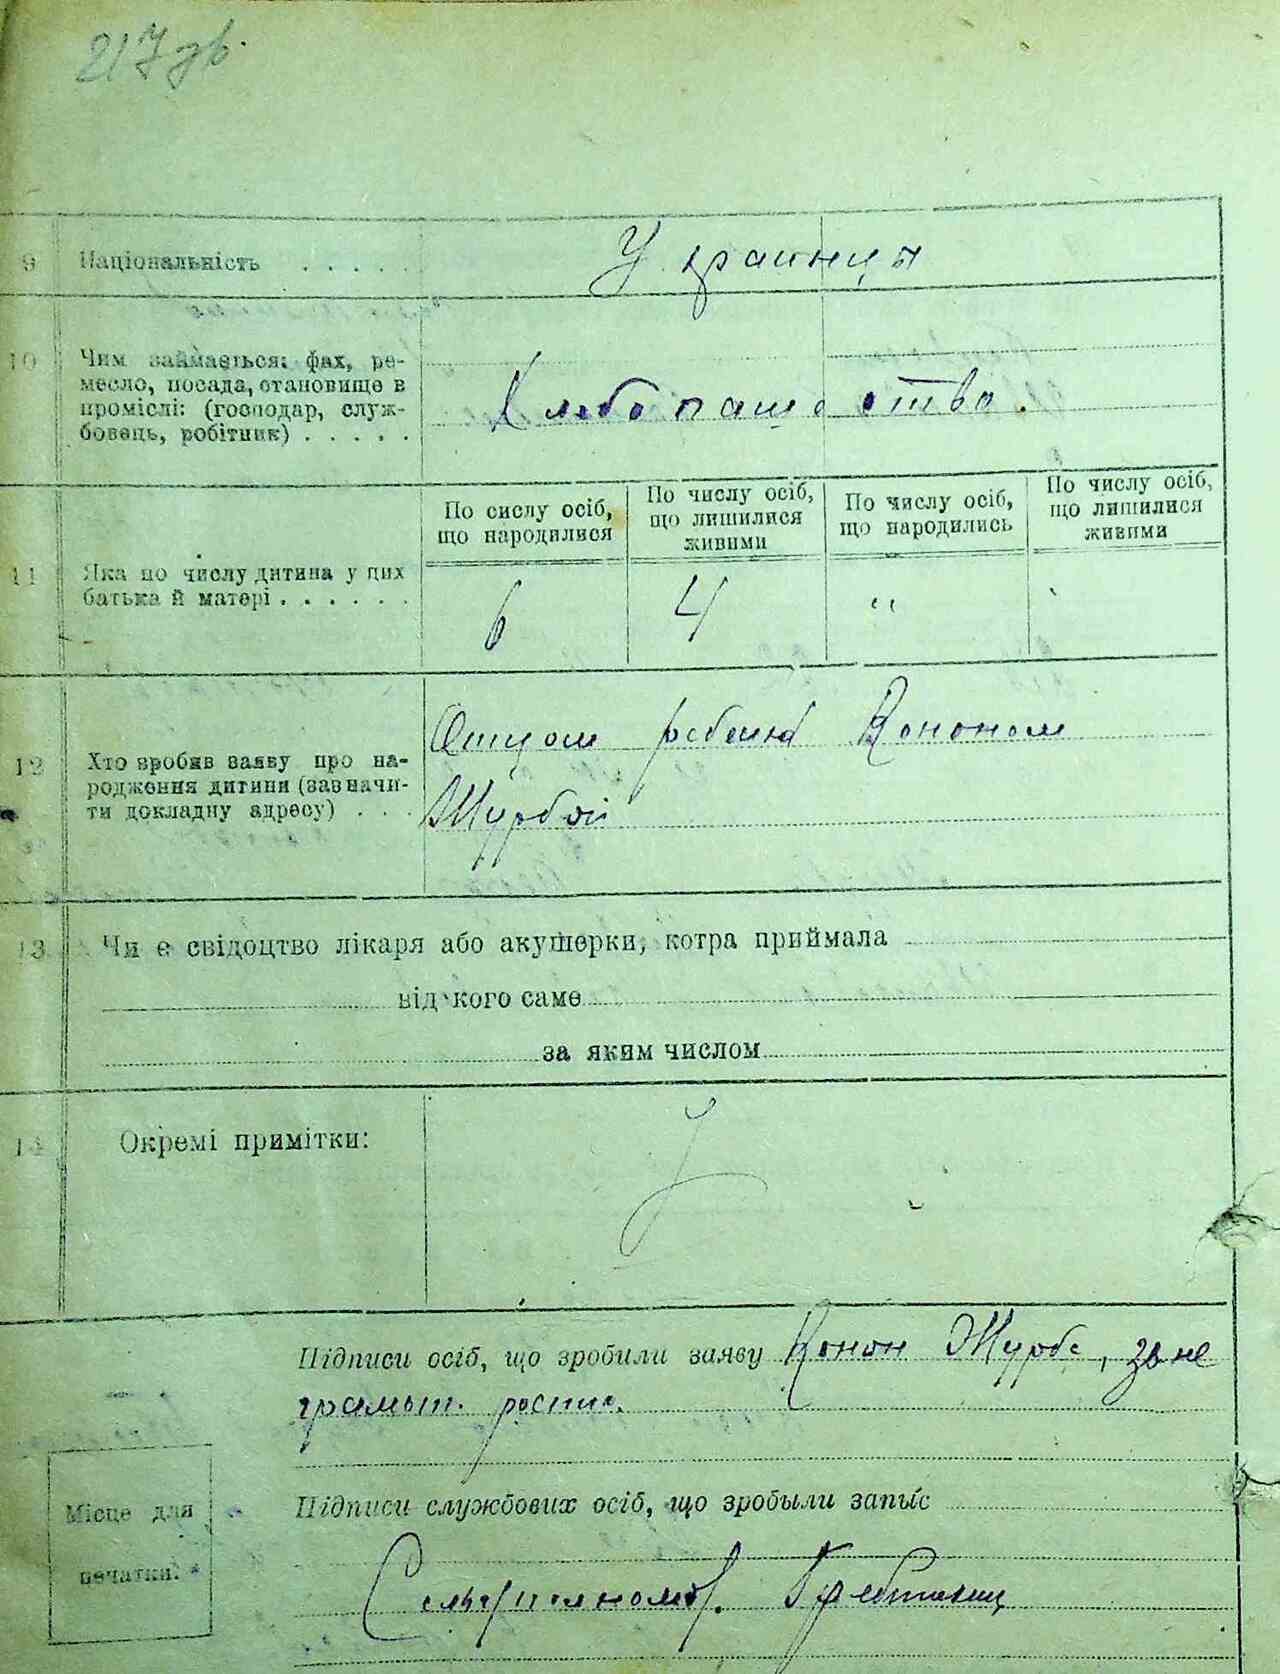 217 зв.
9 Національність . . . . . Украинцы
10 Чим займається: фах, ре-
месло, посада, становище в
проміслі: (господар, служ-
бовець, робітник) . . . . .
Хлебопашество.
По сислу осіб, що народилися
По числу осіб, що лишилися живими
По числу осіб, що народились
По числу осіб, що лишилися живими
11 Яка по числу дитина у цих
батька й матері . . . . . .
6 4 " "
12 Хто зробив заяву про на-
родження дитини (зазначи-
ти докладну адресу) . . .
Отцом ребенка Кононом
Журбой
13 Чи є свідоцтво лікаря або акушерки, котра приймала
від кого саме
за яким числом
14 Окремі примітки:
Підписи осіб, що зробили заяву Конон Журба, за не
грамотн. распис.
Місце для
печатки.
Підписи службових осіб, що зробыли запыс